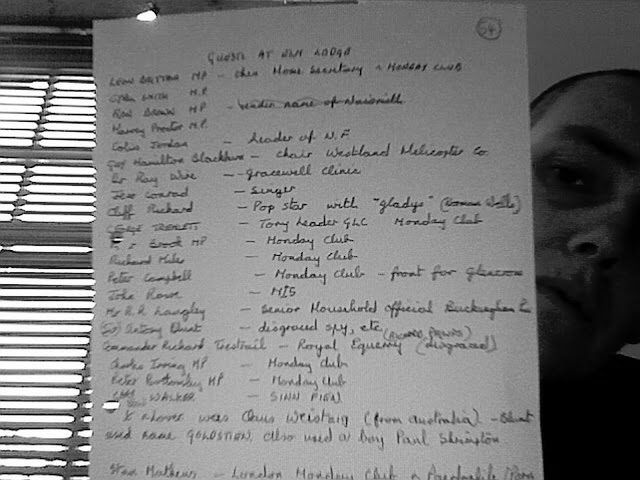 54
GUESTS AT ELM LODGE
LEON BRITTAN MP - then Home Secretary & MONDAY CLUB
SMITH M.P.
RON BROWN MP - under name of Naismith
Harvey Proctor M.P.
Colin Jordan - Leader of N.F
Guy Hamilton Blackburn - Chair Westland Helicopter Co.
Dr Ray Wire - gracewell clinic
Jess Conrad - Singer
Cliff Richard - Pop star with "gladys"
GEORGE TREMLETT - Tory Leader GLC Monday Club
BROOK MP - Monday Club
Richard Miles - Monday Club
Peter Campbell - Monday Club - front for
John Rowe - MI5
Mr R. R. Langley - Senior Household Official Buckingham
(Sir) Antony Blunt - disgraced spy, etc.
Commander Richard Trestrail - Royal Equerry (disgraced)
Charles Irving MP - Monday club
Peter Bottomley MP - Monday Club
WALKER - SINN FIEN
lover was (from australia) - Blunt
used name GOLDSTEIN, also used a boy Paul
Stan Mathews - London Monday Club & Paedophile